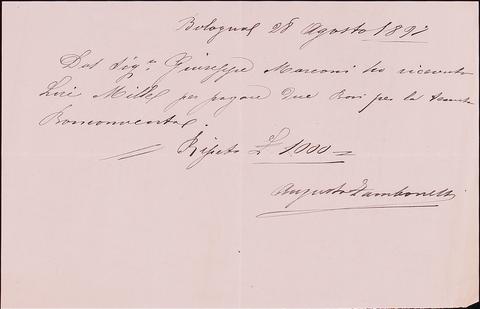 Bologna 28 Agosto 1892
Dal Sigr. Giuseppe Marconi ho ricevuto
Lire Mille per pagare due Bovi per la tenuta
Ripeto £ 1000 =
Augusto Zambonelli